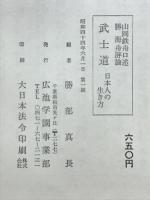 山岡鉄舟口述
勝海舟評論
武士道
日本人の
生き方
六五〇円
昭和四十四年六月一日 第一版
編者 勝部真長
発行 広池学園事業部
印刷 大日本法令印刷 株式会社